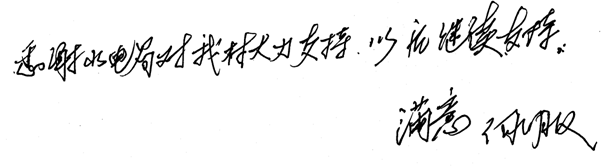 感谢水电局对我村大力支持.以后继续支持.
满意